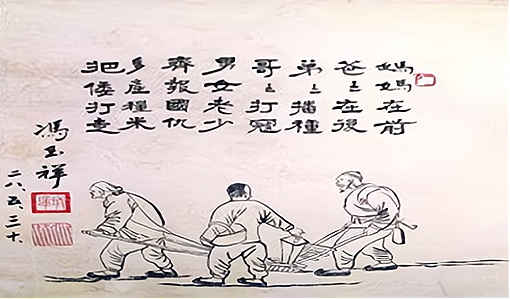 媽媽在前
爸〻在後
弟〻播種
哥〻打冦
男女老少
齊報國仇
多產種米
把倭打走
馮玉祥
二八、五、三十、